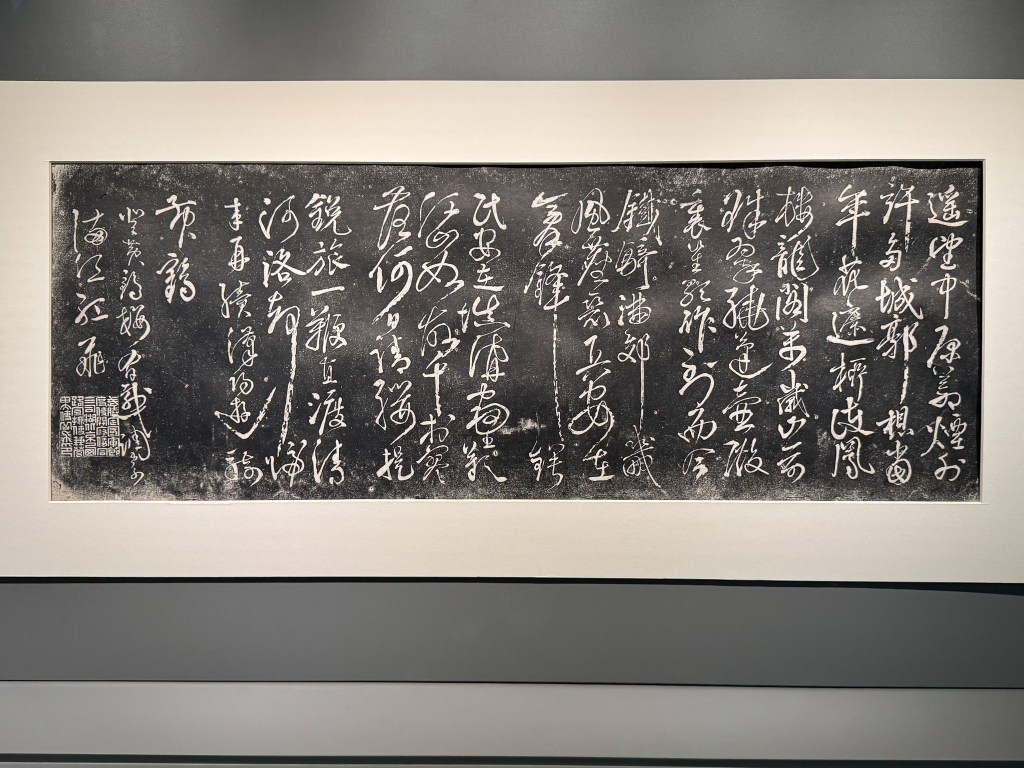 遥望中原荒煙外
許多城郭想當
年花遮柳護鳳
樓龍閣萬歲山前
珠翠繞蓬壺殿
裏笙歌作到而今
鐵騎滿郊畿
風塵惡兵安在
膏鋒鍔
民安在填溝壑歎
江山如故千村寥
落何日請纓提
銳旅一鞭直渡清
河洛却歸
來再續漢陽遊騎
黃鶴
登黃鶴樓有感調寄
滿江紅 飛